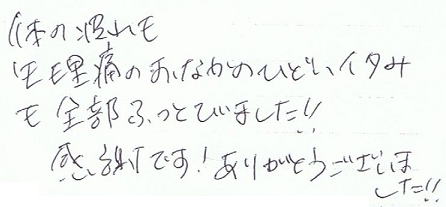 体の疲れも
生理痛のおなかのひどいイタみ
も全部ふっとびました!!
感謝です!ありがとうございま
した!!